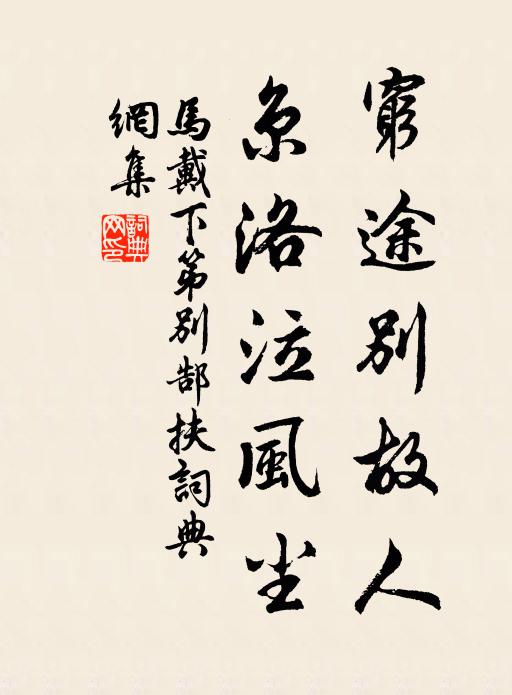 窮途別故人
京洛泣風尘
馬戴下第別郜扶詞典
網集
詞典
网印